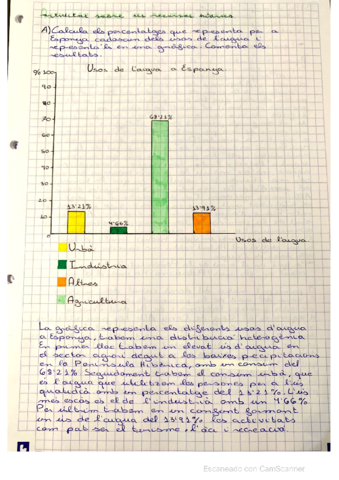 Activitat sobre els recursos hídrics.
A) Calcula els percentatges que representa per a
Espanya cadascun dels usos de l'aigua i
representa'ls en una gràfica. Comenta els
resultats.
% 100
Usos de l'aigua a Espanya
90
80
70
68'21%
60
50
40
30
20
13'21%
13'91%
10
4'66%
0
Usos de l'aigua
Urbà
Indústria
Altres
Agricultura
La gràfica representa els diferents usos d'aigua
a Espanya, trobem una distribució heterogènia
En primer lloc trobem un elevat ús d'aigua en
el sector agrari degut a les baixes precipitacions
en la Península Ibérica, amb un consum del
68'21%. Seguidament trobem el consum urbà, que
és l'aigua que utilitzem les persones per a l'ús
quotidià amb un percentatge del 13'21%. L'ús
més escàs es el de l'indústria amb un 4'66%
Per últim trobem en un conjunt format
un ús de l'aigua del 13'91% les activitats
com pot ser el turisme, l'oci i recreació.
Escaneado con CamScanner